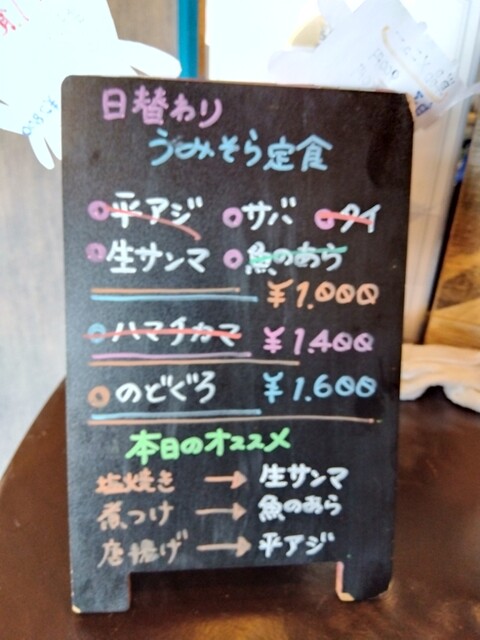 日替わり
うみそら定食
平アジ サバ タイ
生サンマ 魚のあら
¥1.000
ハマチカマ ¥1.400
のどぐろ ¥1.600
本日のオススメ
塩焼き → 生サンマ
煮つけ → 魚のあら
唐揚げ → 平アジ